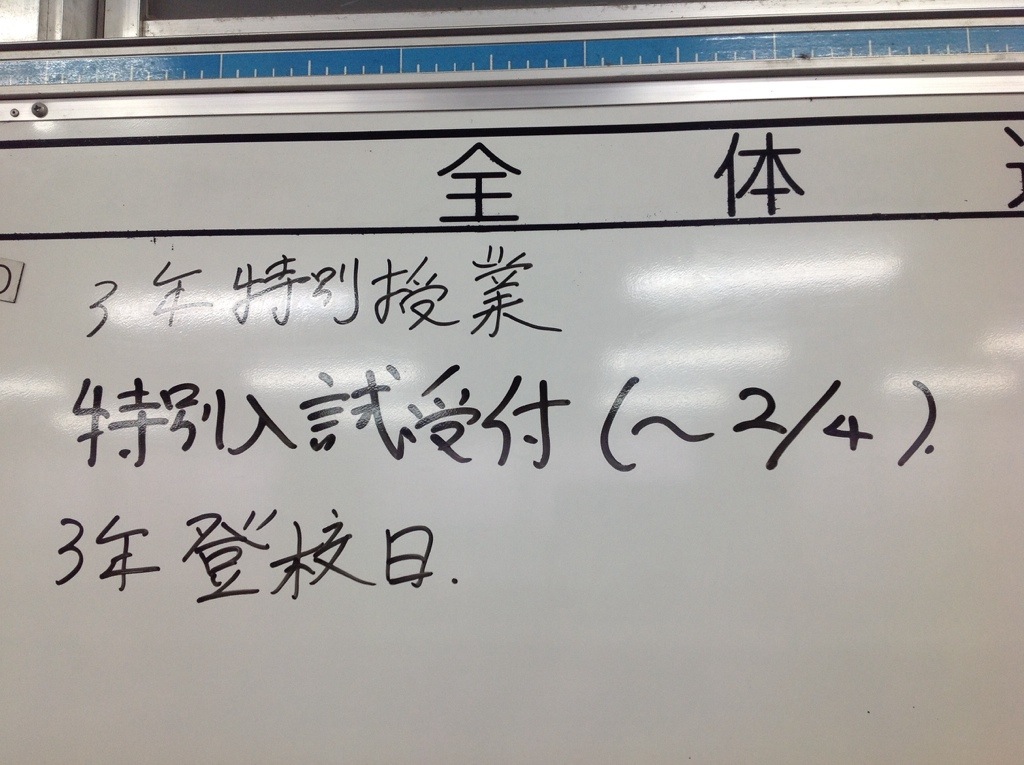 全体
3年特別授業
特別入試受付(〜2/4).
3年登校日.